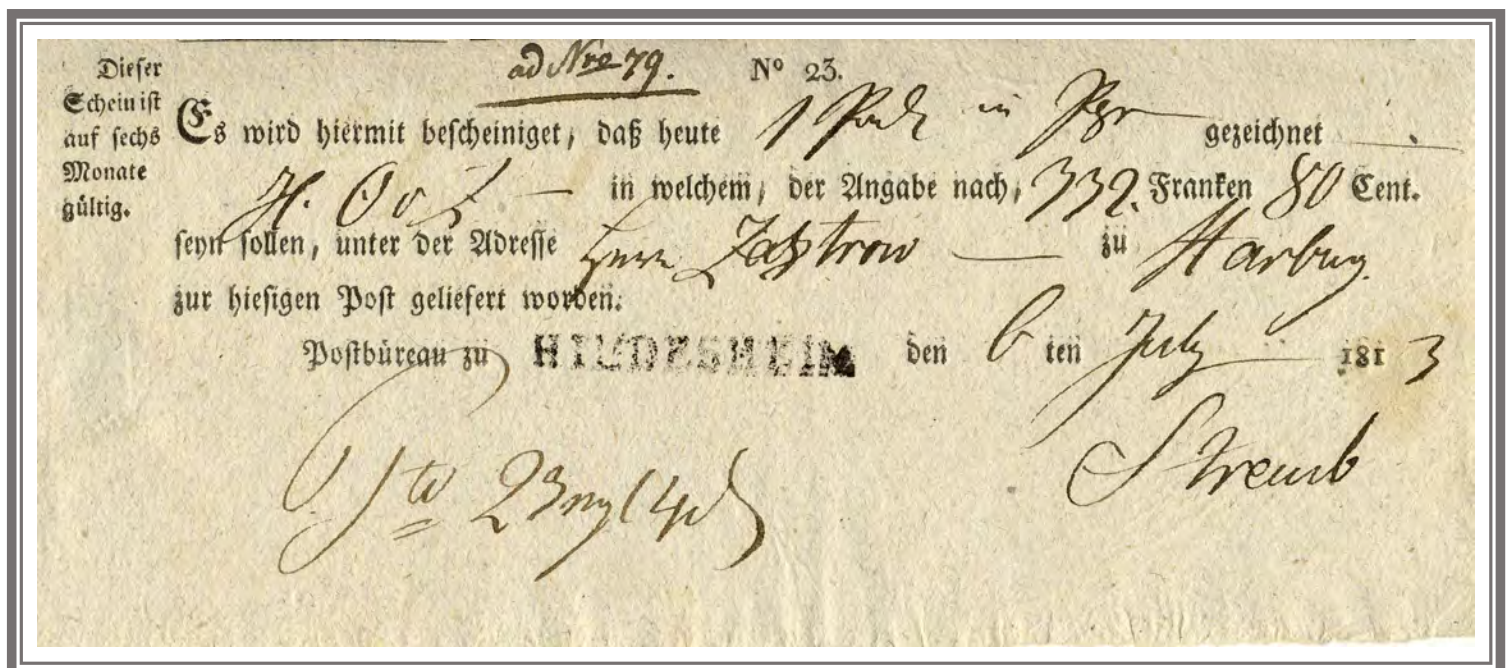 ad Nro 79. Nº 23.
Dieser
Schein ist
auf sechs
Monate
gültig.
Es wird hiermit bescheiniget, daß heute 1 Pack in Ppr gezeichnet
H. O v Z in welchem, der Angabe nach, 332. Franken 80 Cent.
seyn sollen, unter der Adresse Herrn Zastrow zu Harburg.
zur hiesigen Post geliefert worden.
Postbüreau zu HILDESHEIM den 6 ten July 1813